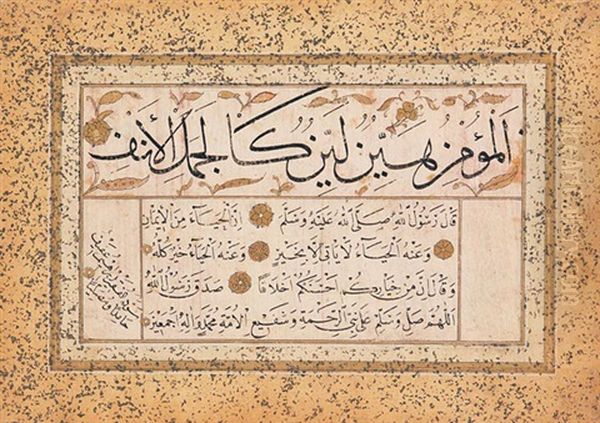 المؤمن هين لين كالجمل الأنف
قال رسول الله صلى الله عليه وسلم إن الحياء من الإيمان
وعنه الحياء لا يأتي إلا بخير وعنه الحياء خير كله
وقال إن من خياركم أحسنكم أخلاقا صدق رسول الله
اللهم صل وسلم على نبي الرحمة وشفيع الأمة محمد وآله أجمعين